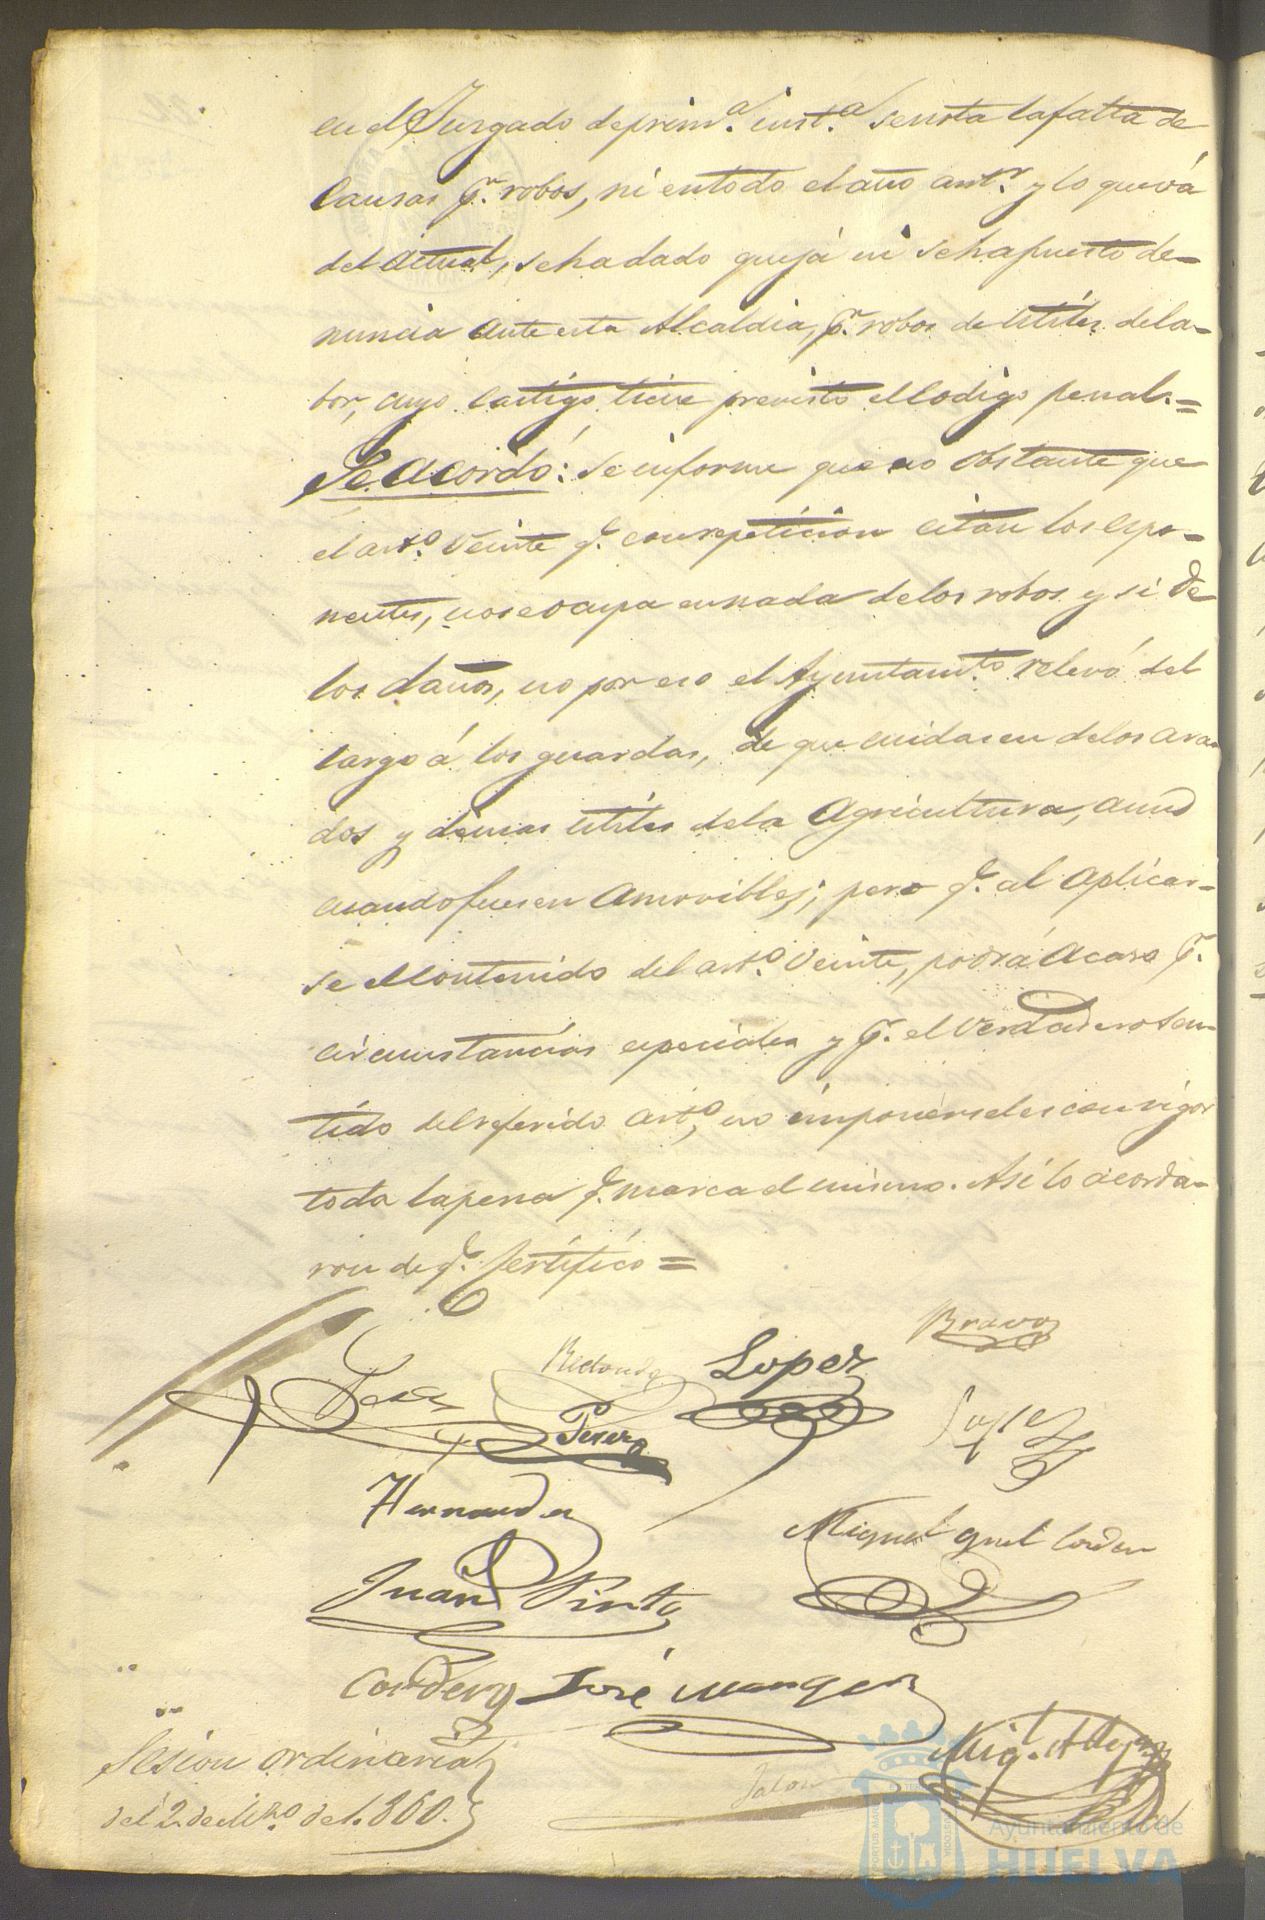 en el Juzgado de prim.ª inst.ª se nota la falta de
causas p.r robos, ni en todo el año ant.r y lo que vá
del actual, se ha dado quejá ni se ha puesto de-
nuncia ante esta Alcaldia, p.r robos de utiles de la-
bor, cuyo castigo tiene previsto el Codigo penal.=
Se acordó: Se informe que no obstante que
el art.o veinte q.e con repeticion citan los espo-
nentes, no se ocupa en nada de los robos y si de
los daños, no por eso el Ayuntam.to relevó del
cargo á los guardas, de que cuidasen de los ara-
dos y demas utiles de la Agricultura, aund
cuando fuesen amovibles; pero q.e al aplicar-
se el contenido del art.o veinte, podrá acaso p.r
circunstancias especiales y p.r el verdadero sen-
tido del referido art.o, no imponerseles con rigor
toda la pena q.e marca el mismo. Asi lo acorda-
ron de q.e certifico=
Bravo
Redondo Lopez
Perez
Hernandez
Miguel
Juan Pinto
Cordero José
Mig.l
Jalon
Sesion ordinaria
del 2 de de 1.860.
Ayuntamiento de
HUELVA